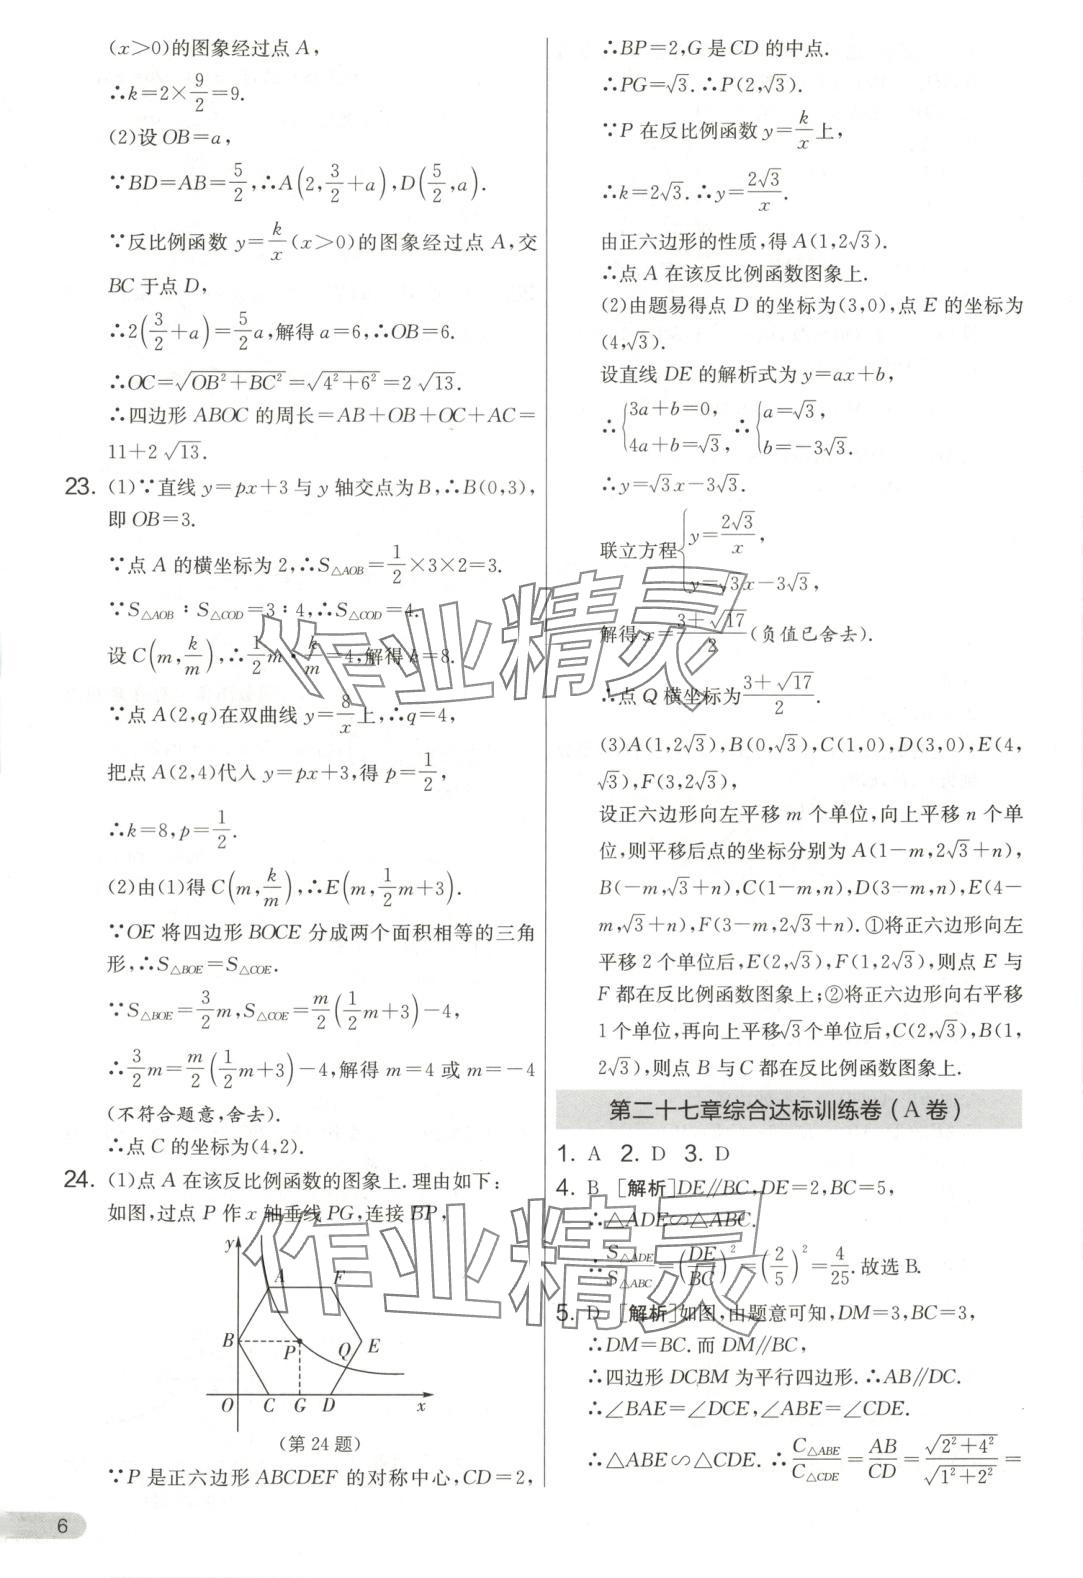 (x>0)的图象经过点 A,
∴k=2×9/2=9.
(2)设 OB=a,
∵BD=AB=5/2,∴A(2,3/2+a),D(5/2,a).
∵反比例函数 y=k/x(x>0)的图象经过点 A,交
BC 于点 D,
∴2(3/2+a)=5/2a,解得 a=6,∴OB=6.
∴OC=√(OB²+BC²)=√(4²+6²)=2√13.
∴四边形 ABOC 的周长=AB+OB+OC+AC=
11+2√13.
23. (1)∵直线 y=px+3 与 y 轴交点为 B,∴B(0,3),
即 OB=3.
∵点 A 的横坐标为 2,∴S△AOB=1/2×3×2=3.
∵S△AOB∶S△COD=3∶4,∴S△COD=4.
设 C(m,k/m),∴1/2m·k/m=4,解得 k=8.
∵点 A(2,q)在双曲线 y=8/x上,∴q=4,
把点 A(2,4)代入 y=px+3,得 p=1/2,
∴k=8,p=1/2.
(2)由(1)得 C(m,k/m),∴E(m,1/2m+3).
∵OE 将四边形 BOCE 分成两个面积相等的三角
形,∴S△BOE=S△COE.
∵S△BOE=3/2m,S△COE=m/2(1/2m+3)-4,
∴3/2m=m/2(1/2m+3)-4,解得 m=4 或 m=-4
(不符合题意,舍去).
∴点 C 的坐标为(4,2).
24. (1)点 A 在该反比例函数的图象上.理由如下:
如图,过点 P 作 x 轴垂线 PG,连接 BP,
y
A F
B P Q E
O C G D x
(第 24 题)
∵P 是正六边形 ABCDEF 的对称中心,CD=2,
6
∴BP=2,G 是 CD 的中点.
∴PG=√3.∴P(2,√3).
∵P 在反比例函数 y=k/x上,
∴k=2√3.∴y=2√3/x.
由正六边形的性质,得 A(1,2√3).
∴点 A 在该反比例函数图象上.
(2)由题易得点 D 的坐标为(3,0),点 E 的坐标为
(4,√3).
设直线 DE 的解析式为 y=ax+b,
∴{3a+b=0, 4a+b=√3, ∴{a=√3, b=-3√3.
∴y=√3x-3√3.
联立方程{y=2√3/x, y=√3x-3√3,
解得 x=(3+√17)/2(负值已舍去).
∴点 Q 横坐标为(3+√17)/2.
(3)A(1,2√3),B(0,√3),C(1,0),D(3,0),E(4,
√3),F(3,2√3),
设正六边形向左平移 m 个单位,向上平移 n 个单
位,则平移后点的坐标分别为 A(1-m,2√3+n),
B(-m,√3+n),C(1-m,n),D(3-m,n),E(4-
m,√3+n),F(3-m,2√3+n).①将正六边形向左
平移 2 个单位后,E(2,√3),F(1,2√3),则点 E 与
F 都在反比例函数图象上;②将正六边形向右平移
1 个单位,再向上平移√3个单位后,C(2,√3),B(1,
2√3),则点 B 与 C 都在反比例函数图象上.
第二十七章综合达标训练卷(A 卷)
1. A 2. D 3. D
4. B [解析]DE∥BC,DE=2,BC=5,
∴△ADE∽△ABC.
∴S△ADE/S△ABC=(DE/BC)²=(2/5)²=4/25.故选 B.
5. D [解析]如图,由题意可知,DM=3,BC=3,
∴DM=BC.而 DM∥BC,
∴四边形 DCBM 为平行四边形.∴AB∥DC.
∴∠BAE=∠DCE,∠ABE=∠CDE.
∴△ABE∽△CDE.∴C△ABE/C△CDE=AB/CD=√(2²+4²)/√(1²+2²)=
作业精灵
作业精灵